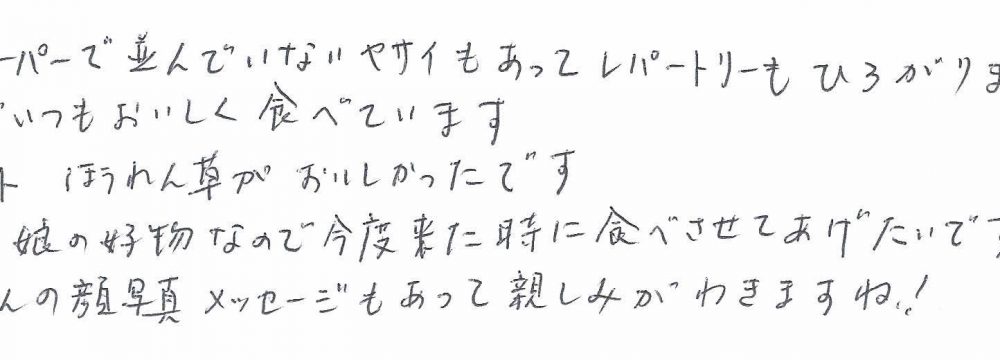 ーパーで並んでいないヤサイもあってレパートリーもひろがりま
いつもおいしく食べています
ト ほうれん草がおいしかったです
娘の好物なので今度来た時に食べさせてあげたいです
んの顔写真メッセージもあって親しみがわきますね!